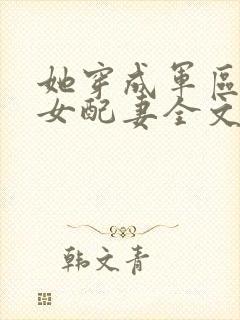 她穿成軍區
女配妻全文
韩文青